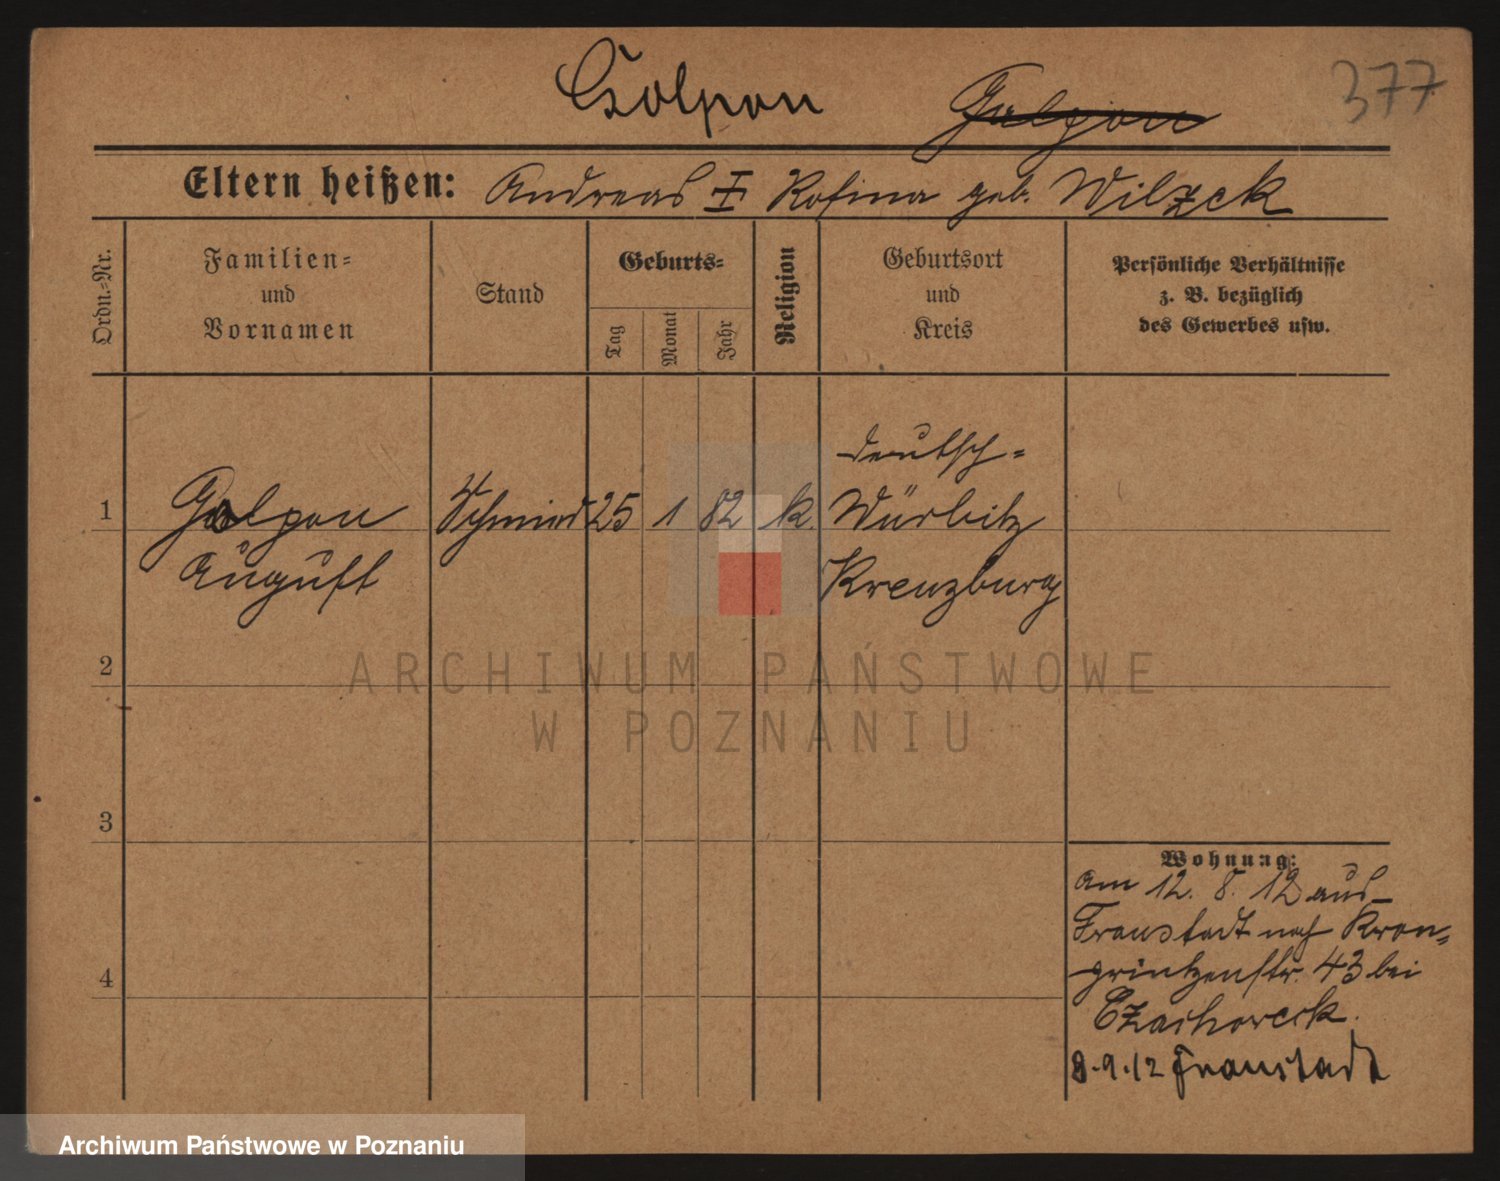 Golpon Galpon 377
Eltern heißen: Andreas Rosina geb. Wilzek
Ordn.-Nr.
Familien-
und
Vornamen
Stand
Geburts-
Tag
Monat
Jahr
Religion
Geburtsort
und
Kreis
Persönliche Verhältnisse
z. B. bezüglich
des Gewerbes usw.
deutsch-
1 Golpon Schmied 25 1 82 k Würbitz
August Kreuzburg
2
3
4
Wohnung:
am 12. 8. 12 aus
Fraustadt nach Kron-
prinzenstr. 43 bei
8.9.12 Fraustadt
ARCHIWUM PAŃSTWOWE
W POZNANIU
Archiwum Państwowe w Poznaniu